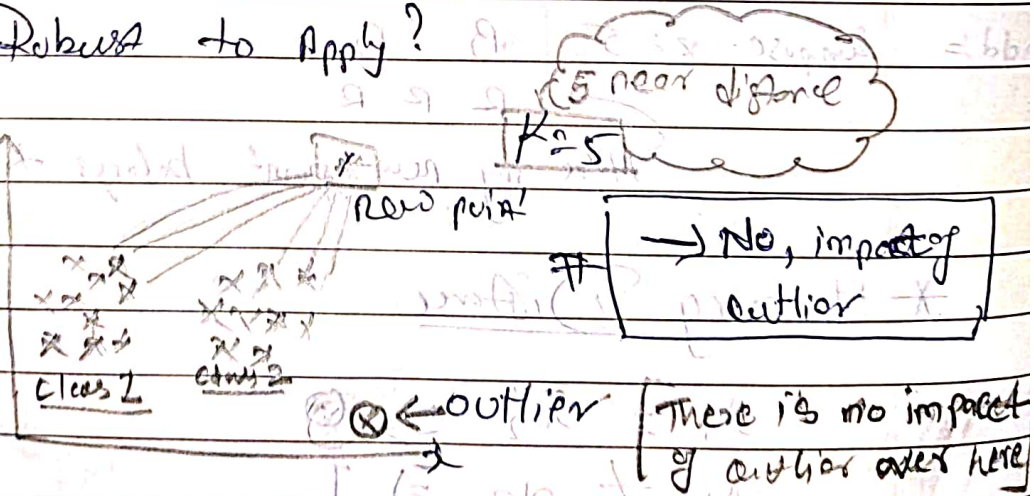 Robust to Apply?
5 near distance
K=5
new point
# → No, impact of
outlior
class 1
class 2
⊗ ← outlier
There is no impact
of outlier over here